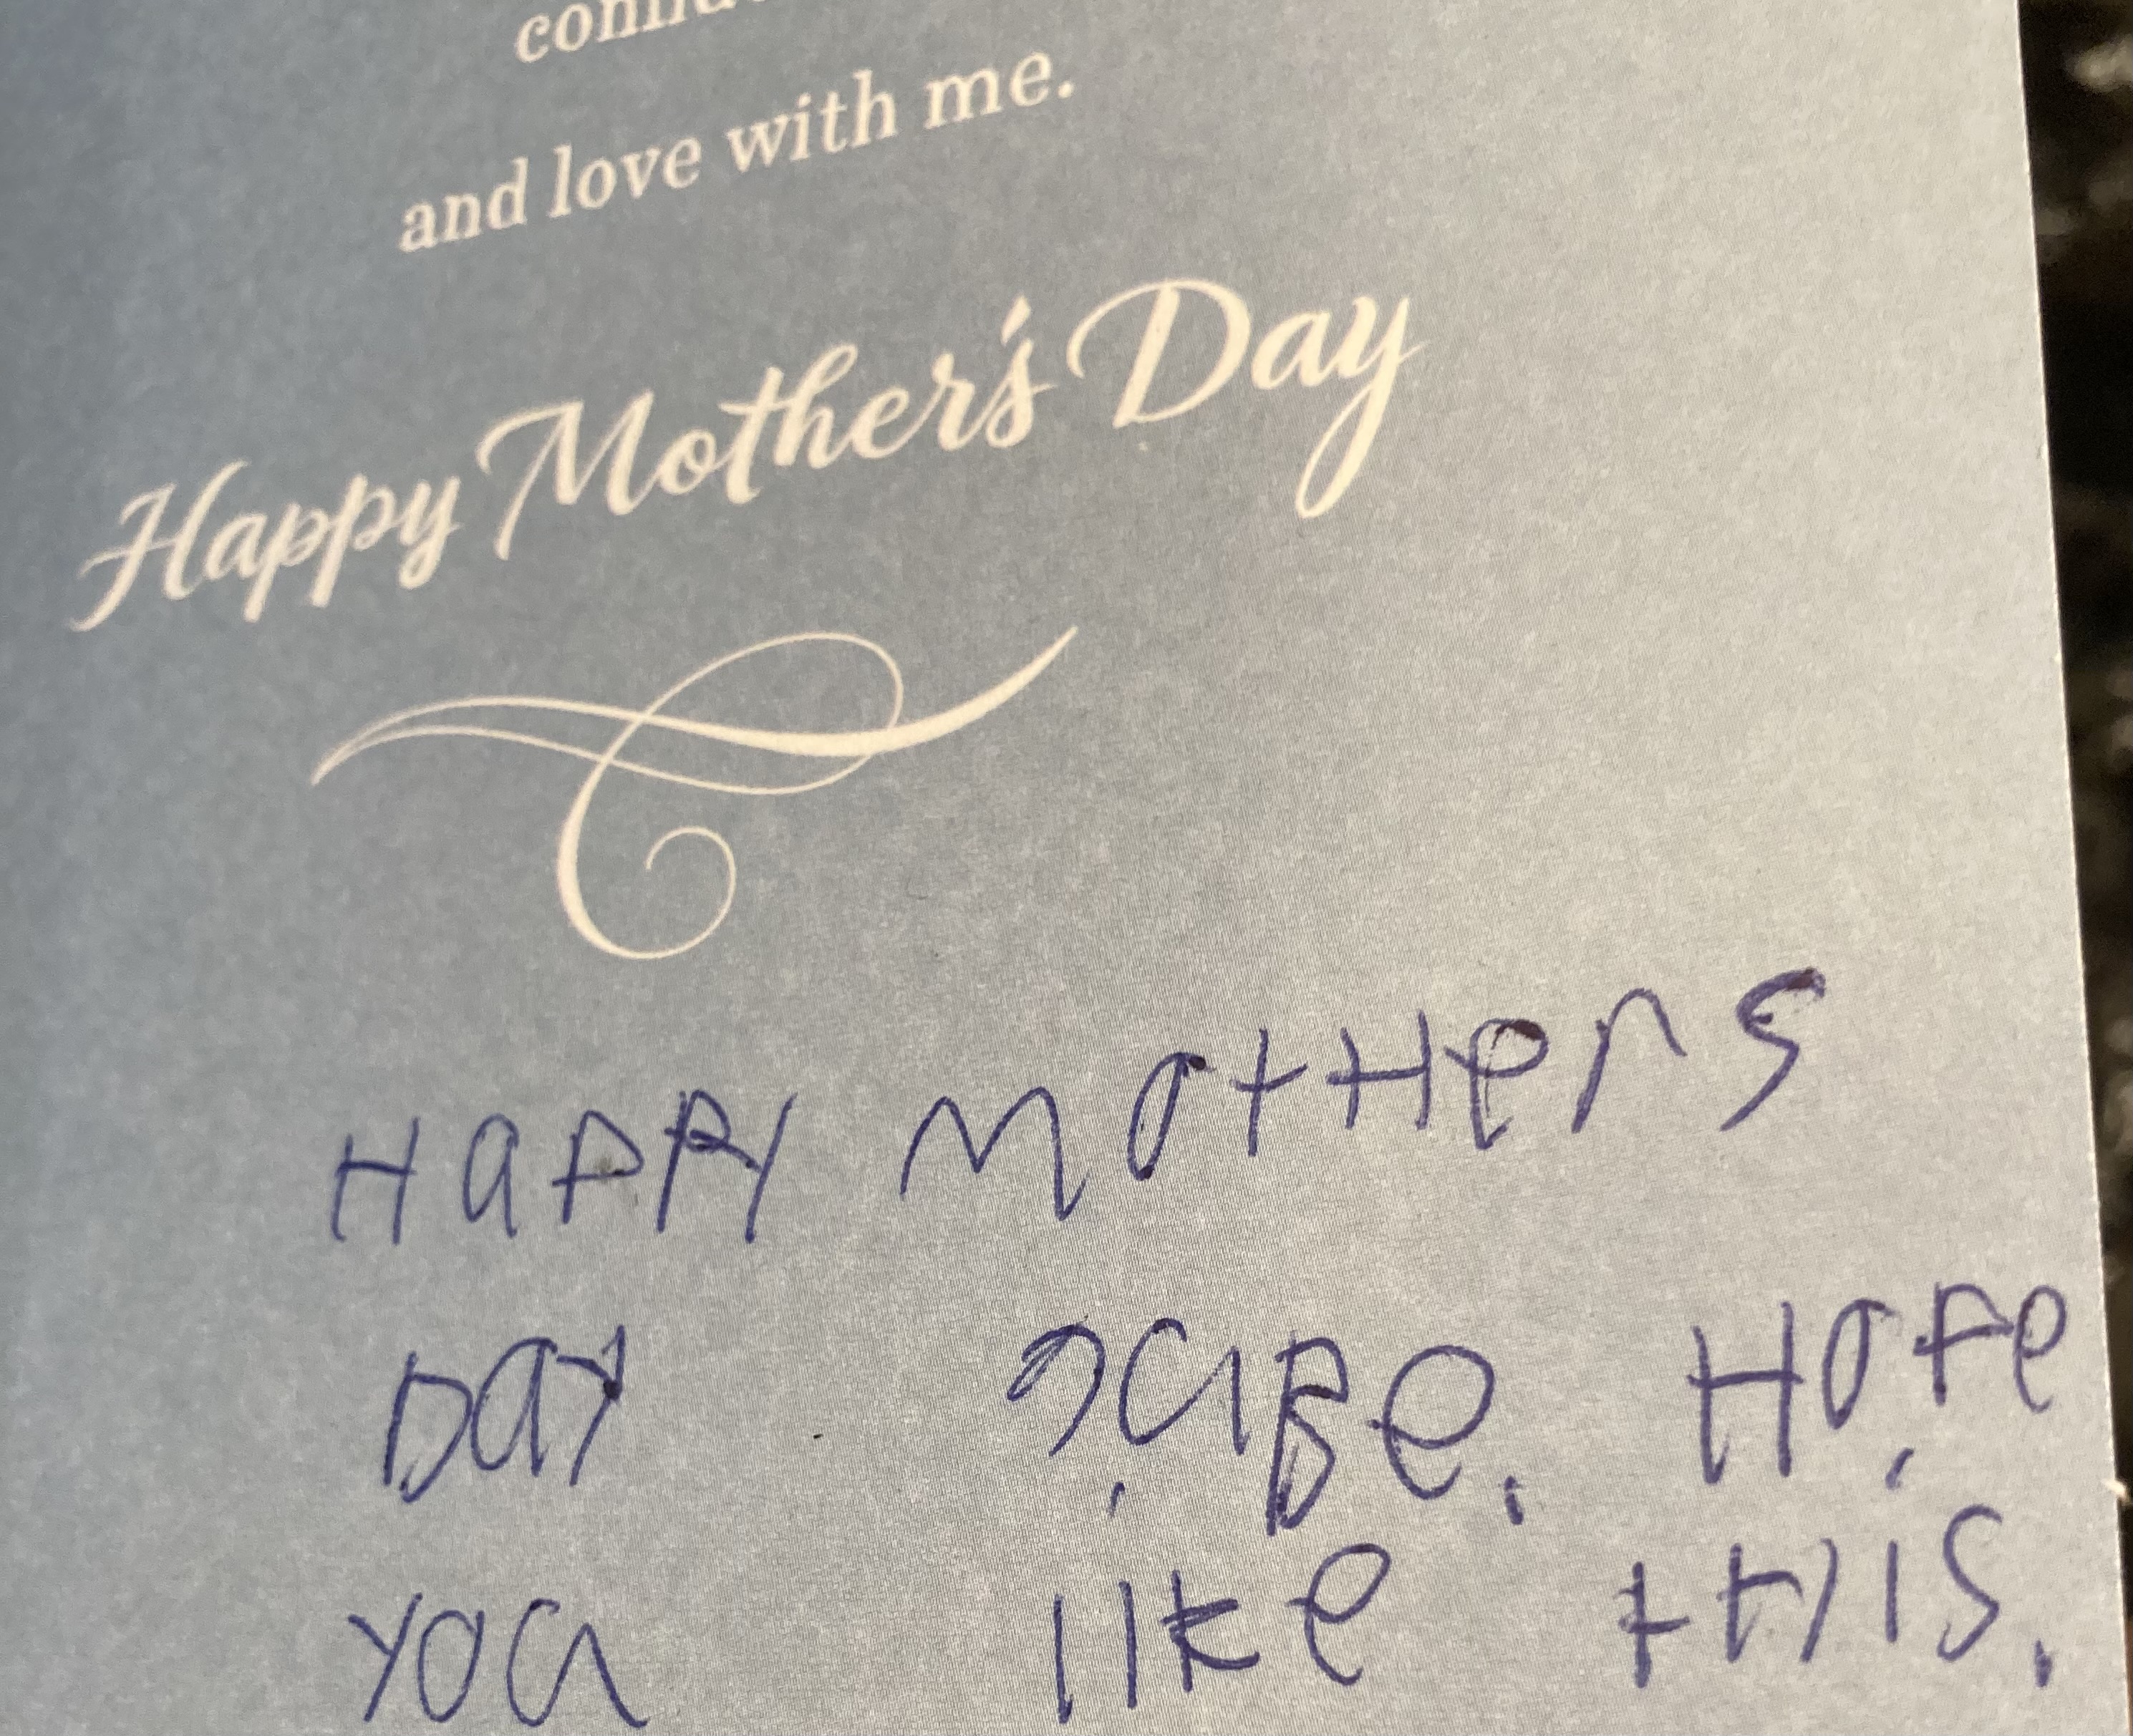 and love with me.
Happy Mother's Day
Happy Mothers
Day Babe. Hope
you like this.